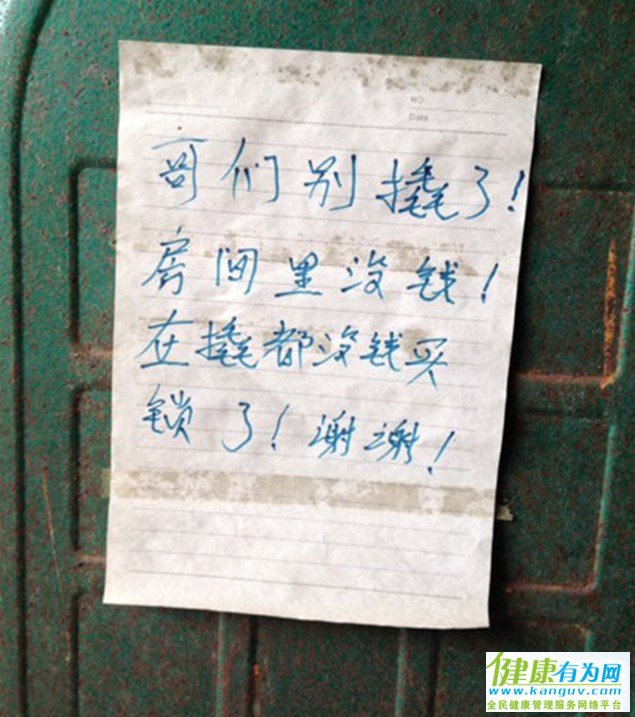 NO.
Data
哥们别撬了!
房间里没钱!
在撬都没钱买
锁了!谢谢!
健康有为网
www.kanguv.com
全民健康管理服务网络平台